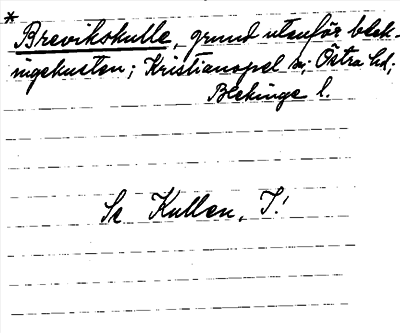 *
Brevikskulle, grund utanför blek-
ingekusten; Kristianopel s; Östra hd;
Blekinge l.
Se Kullen, T!